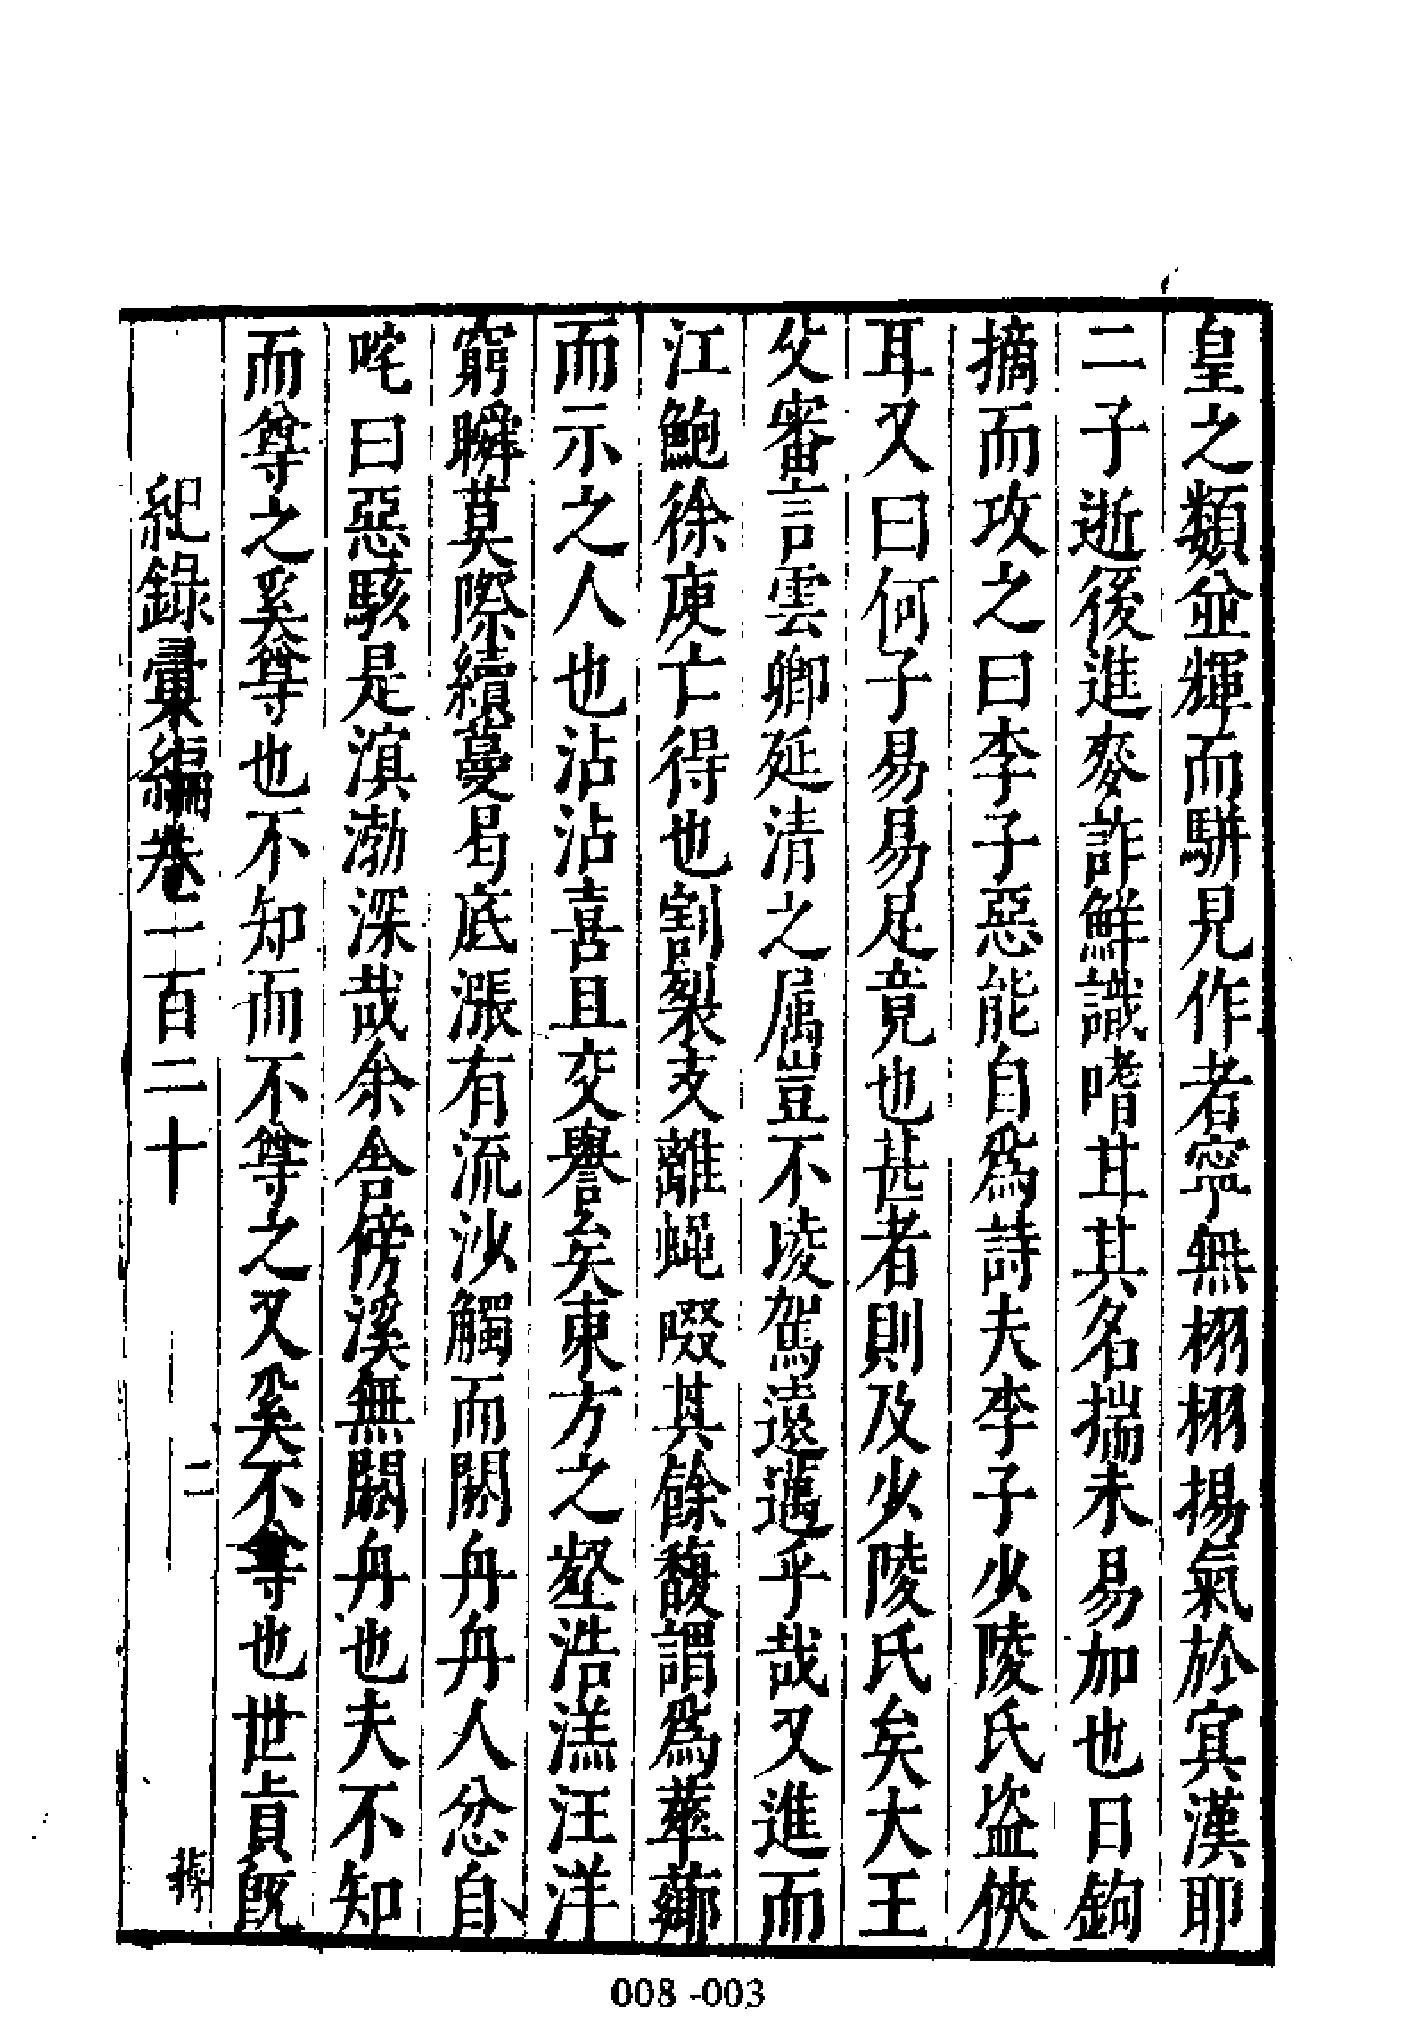 皇之類並輝而駢見作者寧無栩栩揚氣於㝠漢耶
二子逝後進麥詐鮮識嗜其名揣未易加也日鉤
摘而攻之曰李子惡能自爲詩夫李子少陵氏盜俠
耳又曰何子易易足竟也甚者則及少陵氏矣大王
父審言雲卿延清之屬豈不陵駕遠邁乎哉又進而
江鮑徐庾亡得也割裂支離蝇啜其餘馥謂爲華薌
而示之人也沾沾喜且交譽矣東方之壑浩溔汪洋
窮瞬莫際續蔓曷底漲有流沙觸而閼舟舟人忿自
咤曰惡駭是滇渤深哉余舎傍溪無閼舟也夫不知
而尊之奚尊也不知而不尊之又奚不尊也世貞旣
紀錄彙編卷一百二十
二